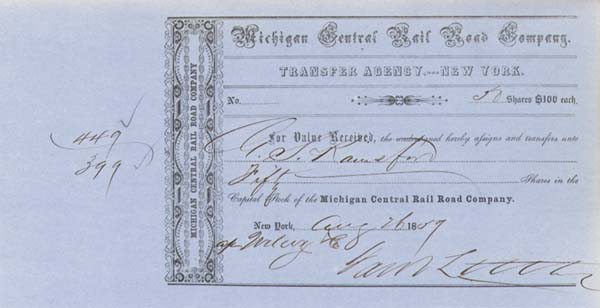 Michigan Central Rail Road Company.
TRANSFER AGENCY,---NEW YORK.
No. 50 Shares $100 each.
For Value Received, the undersigned hereby assigns and transfers unto
Fifty Shares in the
Capital Stock of the Michigan Central Rail Road Company.
New York, Aug 26 1859
MICHIGAN CENTRAL RAIL ROAD COMPANY
449
399